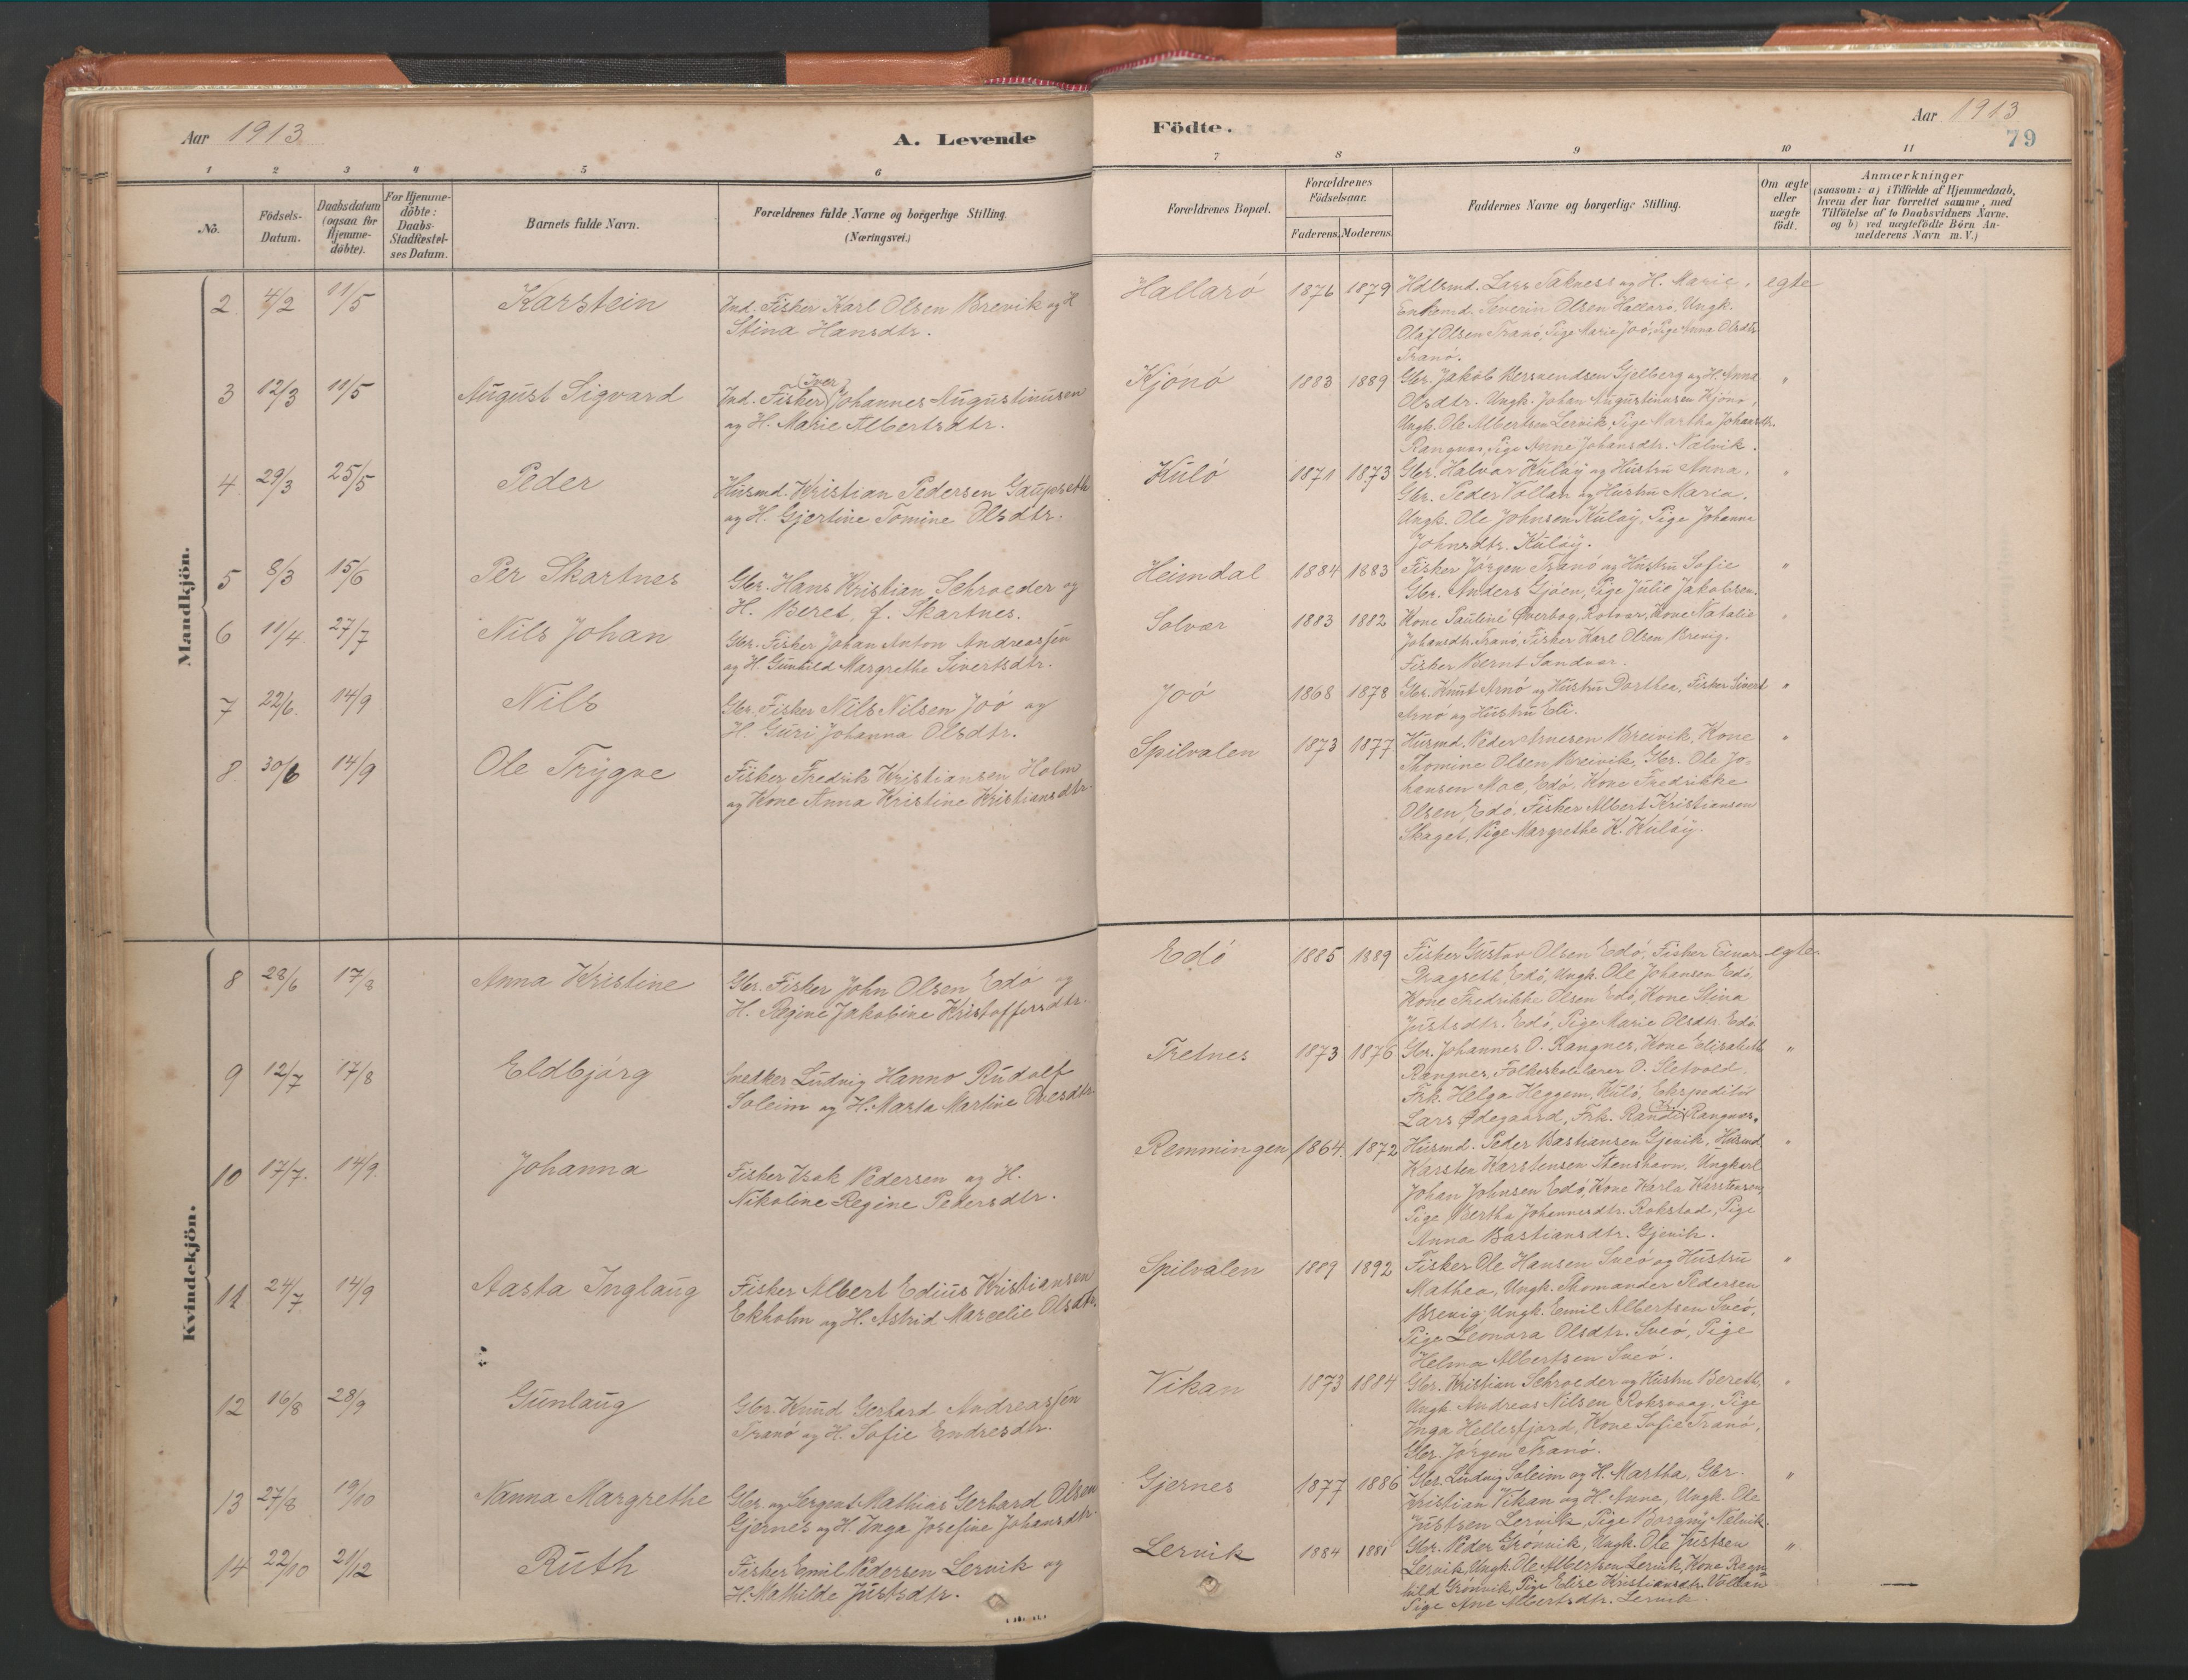 Aar 1913.
A. Levende
1 2 3 4 5 6
No.
Födsels-Datum.
Daabsdatum (ogsaa for Hjemme-döbte).
For Hjemme-döbte: Daabs-Stadfæstel-ses Datum.
Barnets fulde Navn.
Forældrenes fulde Navne og borgerlige Stilling.
(Næringsvei.)
Mandkjön.
2 4/2 11/5 Karstein Ind. Fisker Karl Olsen Brevik og H
Stina Hansdtr.
3 12/3 11/5 August Sigvard Ind. Fisker (Iver) Johannes Augustinusen
og H. Marie Albertsdtr.
4 29/3 25/5 Peder Husmd. Kristian Pedersen Gaupseth
og H. Gjertine Tomine Olsdtr.
5 8/3 15/6 Per Skartnes Gbr. Hans Kristian Schroeder og
H. Beret, f. Skartnes.
6 11/4 27/7 Nils Johan Gbr. Fisker Johan Anton Andreassen
og H. Gunhild Margrethe Sivertsdtr.
7 22/6 14/9 Nils Gbr. Fisker Nils Nilsen Joö og
H. Guri Johanna Olsdtr.
8. 30/6 14/9 Ole Trygve Fisker Fredrik Kristiansen Holm
og Kone Anna Kristine Kristiansdtr.
Kvindekjön.
8 23/6 17/8 Anna Kristine Gbr. Fisker John Olsen Edö og
H. Regine Jakobine Kristoffersdtr.
9 12/7 17/8 Eldbjörg Snedker Ludvig Hanno Rudolf
Soleim og H. Marta Martine Olesdtr.
10 17/7. 14/9. Johanna Fisker Isak Pedersen og H.
Nikoline Regine Petersdtr.
11 24/7 14/9 Aasta Inglaug Fisker Albert Edius Kristiansen
Ekholm og H. Astrid Marcelie Olsdtr.
12 16/8 28/9 Gunlaug Gbr. Knud Gerhard Andreassen
Tranö og H. Sofie Endresdtr.
13 27/8 19/10 Nanna Margrethe Gbr. og Sergent Mathias Gerhard Olsen
Gjernes og H. Inga Josefine Johansdtr.
14 22/10 21/12 Ruth Fisker Emil Pedersen Lervik og
H. Mathilde Justsdtr.
Födte.
Aar 1913
79
7 8 9 10 11
Forældrenes Bopæl.
Forældrenes Födselsaar.
Faderens. Moderens.
Faddernes Navne og borgerlige Stilling.
Om ægte eller uægte födt.
Anmærkninger
(saasom: a) i Tilfælde af Hjemmedaab,
hvem der har forrettet samme, med
Tilföielse af to Daabsvidners Navne.
og b) ved uægtefödte Börn An-
melderens Navn m. V.)
Hallarö 1876 1879 Hdlsmd. Lars Taknes og H. Marie, egte
Enkemd. Severin Olsen Hallarö, Ungk.
Olaf Olsen Tranö, Pige Marie Joö, Pige Anna Olsdtr.
Tranö.
Kjönö 1883 1889 Gbr. Jakob Bersvendsen Gjelberg og H. Anna "
Olsdtr. Ungk. Johan Augustinusen Kjönö,
Ungk. Ole Albertsen Lervik, Pige Martha Johansdtr.
Rangnes, Pige Anne Johansdtr. Nalvik.
Kulö 1871 1873 Gbr. Halvor Kulöy og Hustru Anna, "
Gbr. Peder Vollan og Hustru Maria,
Ungk. Ole Johnsen Kulöy, Pige Johanne
Johnsdtr. Kulöy.
Heimdal 1884 1883 Fisker Jörgen Tranö og Hustru Sofie "
Gbr. Anders Gjöen, Pige Julie Jakobsen.
Solvær 1883 1882 Kone Pauline Øverbog, Rotvær, Kone Natalie "
Johansdtr. Tranö, Fisker Karl Olsen Brevig.
Fisker Bernt Sandvær.
Joö 1868 1878 Gbr. Knut Arnö og Hustru Dorthea, Fisker Sivert "
Arnö og Hustru Eli.
Spilvalen 1873 1877 Husmd. Peder Arnesen Breivik, Kone "
Thomine Olsen Breivik, Gbr. Ole Jo-
hansen Moe, Edö, Kone Fredrikke
Olsen, Edö, Fisker Albert Kristiansen
Skaget, Pige Margrethe K. Kulöy.
Edö 1885 1889 Fisker Gustav Olsen Edö, Fisker Einar egte.
Dragseth, Edö, Ungk. Ole Johansen Edö,
Kone Fredrikke Olsen Edö, Kone Stina
Justsdtr. Edö, Pige Marie Olsdtr. Edö
Tretnes 1873 1876 Gbr. Johannes O. Rangnes, Kone Elisabeth "
Rangnes, Folkeskolelærer O. Sletvold.
Frk. Helga Heggem, Kulö, Ekspeditör
Lars Ødegaard, Frk. Randi Rangnes.
Remmingen 1864. 1872 Husmd. Peder Bastiansen Gjevik, Husmd. "
Karsten Karstensen Stenshavn, Ungkarl
Johan Johnsen Edö, Kone Karla Karstensen,
Pige Bertha Johannesdtr. Rokstad, Pige
Anna Bastiansdtr. Gjevik.
Spilvalen 1889 1892 Fisker Ole Hansen Sveö og Hustru "
Mathea, Ungk. Thomander Pedersen
Brevig, Ungk. Emil Albertsen Sveö,
Pige Leonora Olsdtr. Sveö, Pige
Helma Albertsen Sveö.
Vikan 1873 1884 Gbr. Kristian Schroeder og Hustru Berett, "
Ungk. Andreas Nilsen Roksvaag, Pige
Inga Hellesfjord, Kone Sofie Tranö,
Gbr. Jörgen Tranö.
Gjernes 1877 1886 Gbr. Ludvig Soleim og H. Martha, Gbr. "
Kristian Vikan og H. Anne, Ungk. Ole
Justsen Lervik, Pige Borgny Nelvik.
Lervik 1884 1881 Gbr. Peder Grönvik, Ungk. Ole Justsen "
Lervik, Ungk. Ole Albertsen Lervik, Kone Ragn-
hild Grönvik, Pige Elise Kristiansdtr. Vollan
Pige Ane Albertsdtr. Lervik.